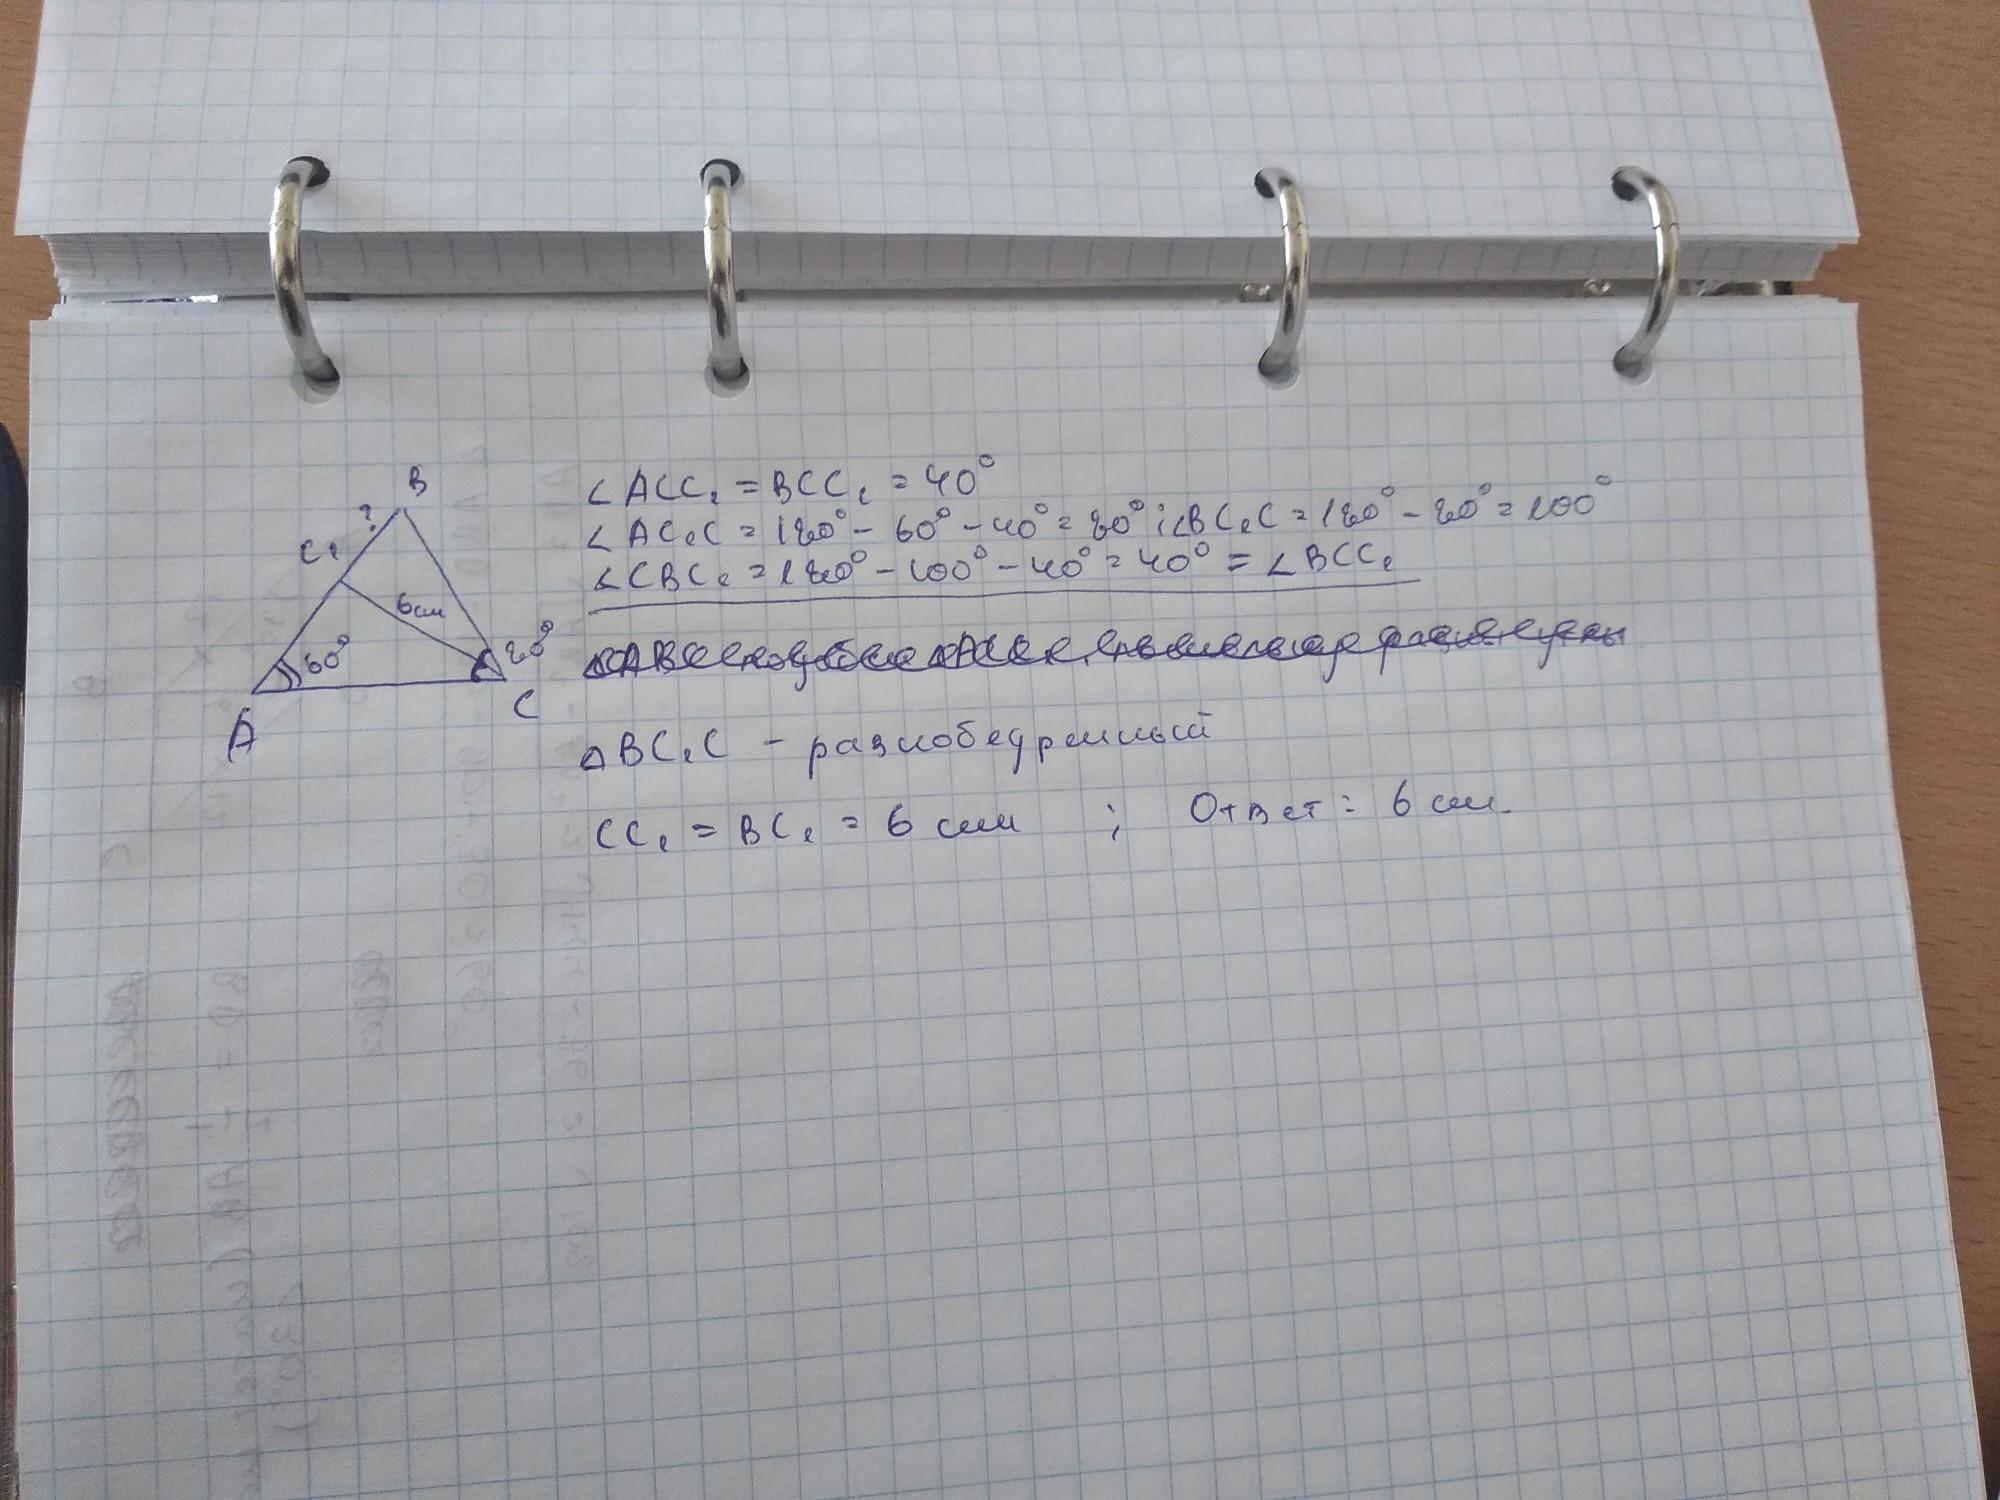 B
?
C₁
6см
60°
80°
A
C
∠ACC₁ = BCC₁ = 40°
∠AC₁C = 180° - 60° - 40° = 80° ; ∠BC₁C = 180° - 80° = 100°
∠CBC₁ = 180° - 100° - 40° = 40° = ∠BCC₁
△BC₁C - равнобедренный
CC₁ = BC₁ = 6 см ; Ответ: 6 см.